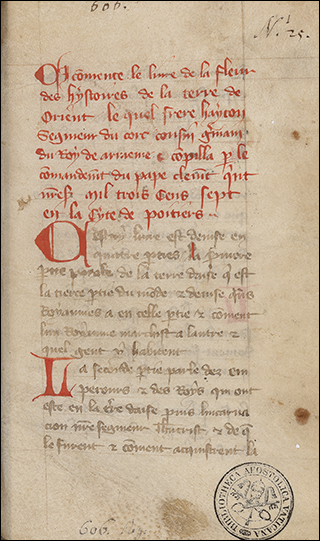 606.
N.º 25.
Ci comente le liure de la fleur
des hystoires de la terre de
Orient le quel frere hayton
Segneur du corc cousin gman
du Roy de armenie & copilla p le
comandemt du pape clemt qnt
mesz mil trois Cens sept
en la Cyte de poitiers
Cist pnt liure est deuise en
quatre pties la pmiere
ptie parole de la terre dasie q est
la tierce ptie du mode & deuise qns
Royaumes a en celle ptie & coment
lun Royaume marchist a lautre &
quel gent y habitent
La seconde ptie parle dez em
pereours & des Roys qui ont
este en la tre dasie puis lincarna
cion nre segneur Jhucrist & de q
le furent & coment acquistrent la
BIBLIOTHECA APOSTOLICA VATICANA
606.